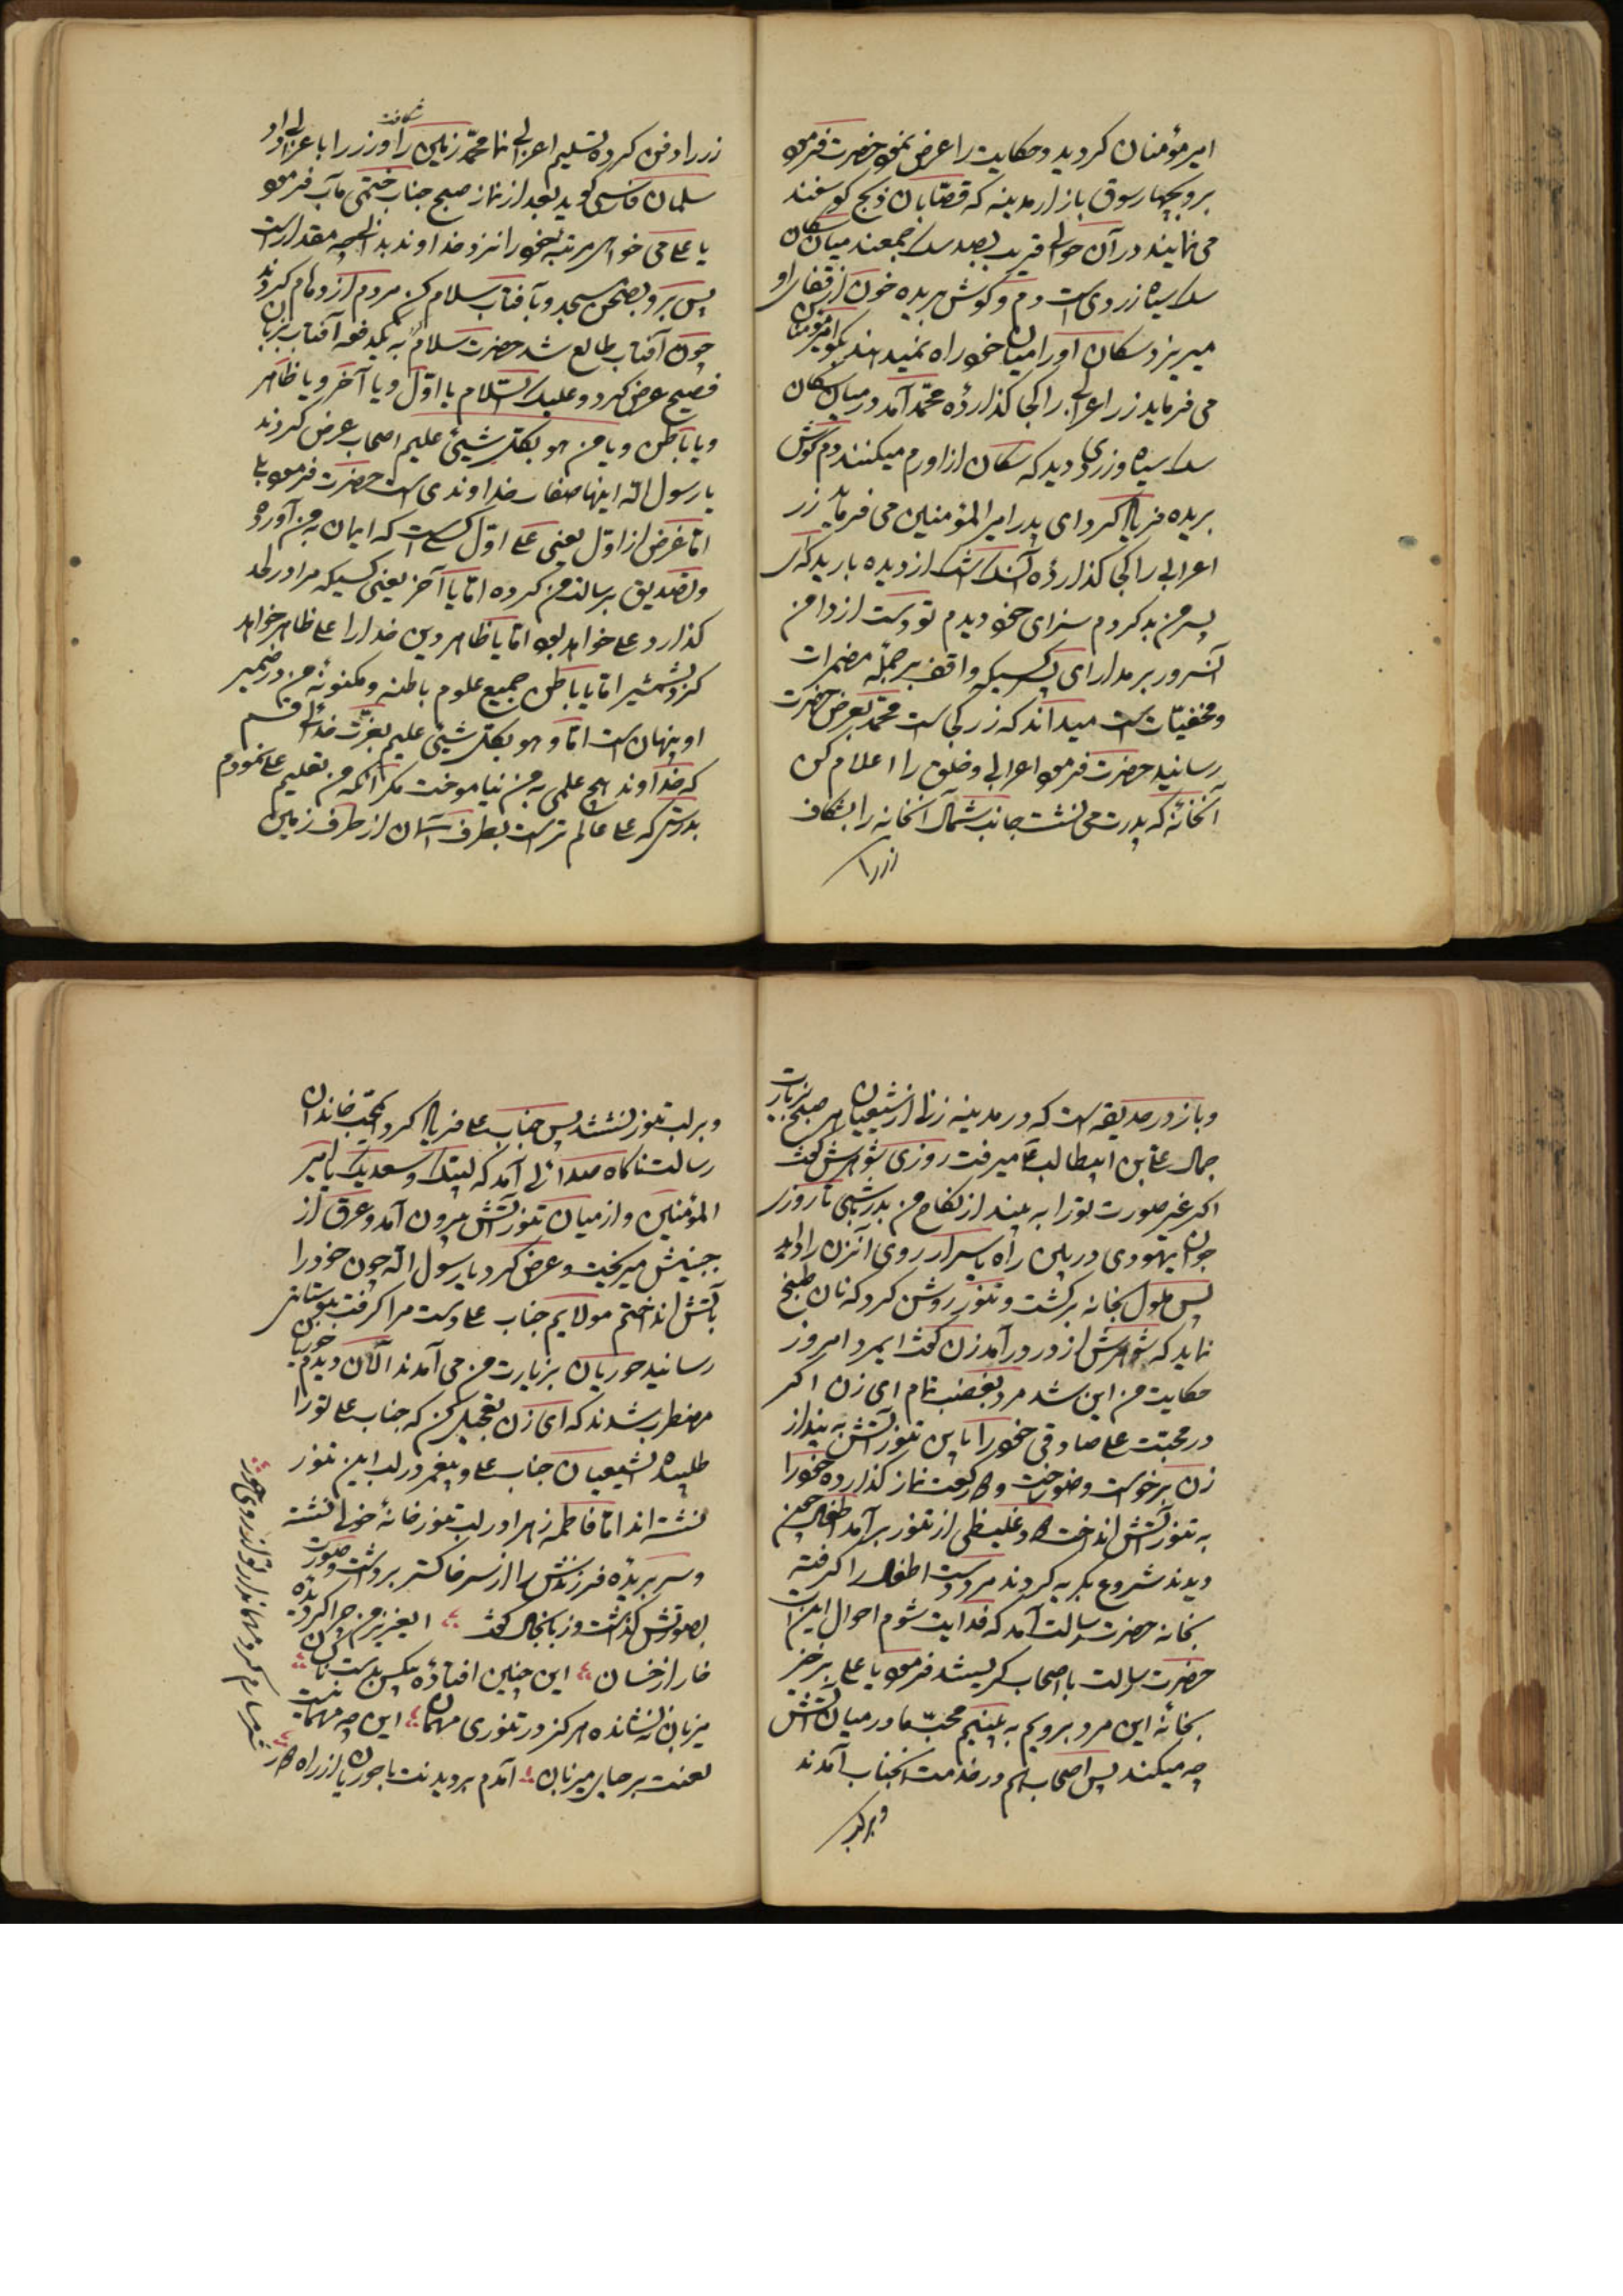 امیر مؤمنان گردید و حکایت را عرض نمود حضرت فرمود
برو بچهار سوق بازار مدینه که قصّابان ذبح گوسفند
می نمایند در آن حوالی قریب بصد سک جمعند میان سکان
سک سیاه زردی است دم و گوش بریده خون از قفای او
میریزد سکان او را میان خود راه نمیدهند بگو امیر مؤمنان
می فرماید زر اعرابی را کجا گذاردهٔ محمّد آمد در میان سکان
سک سیاه و زردی دید که سکان از او رم میکنند دم و گوش
بریده فریاد کرد ای پدر امیر المؤمنین می فرماید زر
اعرابی را کجا گذاردهٔ آن سک اشک از دیده بارید که ای
پسر من بد کردم سزای خود دیدم تو دست از دامن
آنسرور بر مدار ای پسر کسیکه واقف بر جملهٔ مضمرات
و مخفیّات است میداند که زر کجاست محمّد بعرض حضرت
رسانید حضرت فرمود اعرابی و خلق را اعلام کن
آنخانهٔ که پدرت می نشست جانب شمال آنخانه را بشکاف
زر را
زر را دفن کرده تسلیم اعرابی نما محمّد زمین را شکافت و زر را باعرابی داد
سلمان فارسی گوید بعد از نماز صبح جناب ختمی مآب فرمود
یا علی می خواهی مرتبهٔ خود را نزد خداوند بدانی چه مقدار است
پس برو بصحن مسجد و بآفتاب سلام کن مردم ازدحام کردند
چون آفتاب طالع شد حضرت سلام به یکدفعه آفتاب بزبان
فصیح عرض کرد و علیک السّلام یا اوّل و یا آخر و یا ظاهر
و یا باطن و یا من هو بکلّ شیئ علیم اصحاب عرض کردند
یا رسول اللّه اینها صفات خداوندی است حضرت فرمود بلی
امّا غرض از اوّل یعنی علی اوّل کسی است که ایمان به من آورده
و تصدیق برسالت من کرده امّا یا آخر یعنی کسیکه مرا در لحد
گذارد علی خواهد بود امّا یا ظاهر دین خدا را علی ظاهر خواهد
کرد بشمشیر امّا یا باطن جمیع علوم باطنه و مکنونهٔ من در ضمیر
او پنهان است امّا و هو بکلّ شیئ علیم بعزّت خدائی قسم
که خداوند هیچ علمی به من نیاموخت مگر آنکه من تعلیم علی نمودم
بدرستی که علی عالم تر است بطرف آسمان از طرف زمین
و باز در حدیقه است که در مدینه زنی از شیعیان هر صبح بزیارت
جمال علی بن ابیطالب ع میرفت روزی شوهرش گفت
اگر غیر صورت تو را به بیند از نکاح من بدر باشی تا روزی
جوان یهودی در بین راه باسرار روی آنزن را دید
پس ملول بخانه برگشت و تنور روشن کرد که نان طبخ
نماید که شوهرش از در در آمد زن گفت ایمرد امروز
حکایت من این شد مرد بغضب تمام ای زن اگر
در محبّت علی صادقی خود را باین تنور آتش به بینداز
زن برخواست وضو ساخت و دو رکعت نماز گذارده خود را
به تنور آتش انداخت دود غلیظی از تنور بر آمد اطفال چنین
دیدند شروع بگریه کردند مرد دست اطفال را گرفته
بخانه حضرت رسالت آمد که فدایت شوم احوال این است
حضرت رسالت با اصحاب گریستند فرمود یا علی برخیز
بخانهٔ این مرد برویم به بینیم محبّ ما در میان آتش
چه میکند پس اصحاب هم در خدمت آنجناب آمدند
و بر لب
و بر لب تنور نشستند پس جناب علی فریاد کرد ای محبّ خاندان
رسالت ناگاه صدائی آمد که لبّیک و سعدیک یا امیر
المؤمنین و از میان تنور آتش بیرون آمد و عرق از
جبینش میریخت و عرض کرد یا رسول اللّه چون خود را
بآتش انداختم مولایم جناب علی دست مرا گرفت ببوستانی
رسانید حوریان بزیارت من می آمدند الآن دیدم حوریان
مضطرب شدند که ای زن تعجیل کن که جناب علی تو را
طلبیده شیعیان جناب علی و پیغمبر در لب این تنور
نشسته اند امّا فاطمه زهرا در لب تنور خانهٔ خولی نشسته
و سر بریدهٔ فرزندش را از سر خاکستر برداشت و صورت
بصورتش گذاشت و زبانحال گفت ایعزیز من چرا گردیدهٔ
خار از خسان این چنین افتادهٔ بیکس بدست ناکسان
میزبان ننشانده هرگز در تنوری میهمان این چه مهمانیست
لعنت بر چنین میزبان آمدم بر دیدنت با حوریان از راه دور
شرمسارم گر و نماندار تو از روی تو